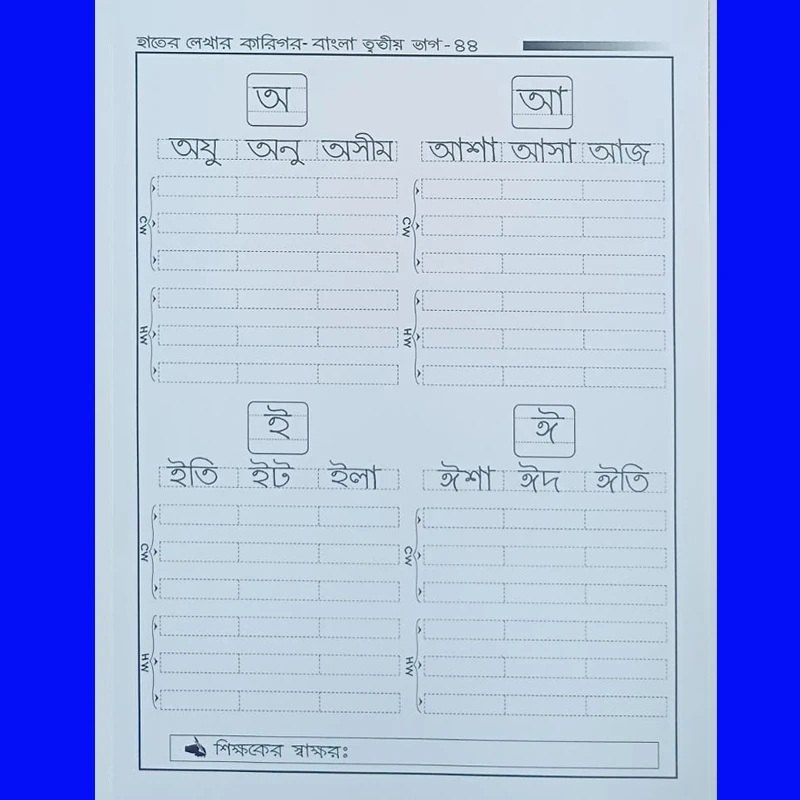 হাতের লেখার কারিগর- বাংলা তৃতীয় ভাগ - ৪৪
অ
আ
অযু অনু অসীম
আশা আসা আজ
CW
CW
HW
HW
ই
ঈ
ইতি ইট ইলা
ঈশা ঈদ ঈতি
CW
CW
HW
HW
শিক্ষকের স্বাক্ষরঃ